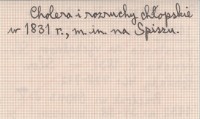 Cholera i rozruchy chłopskie
w 1831 r., m. in. na Spiszu.